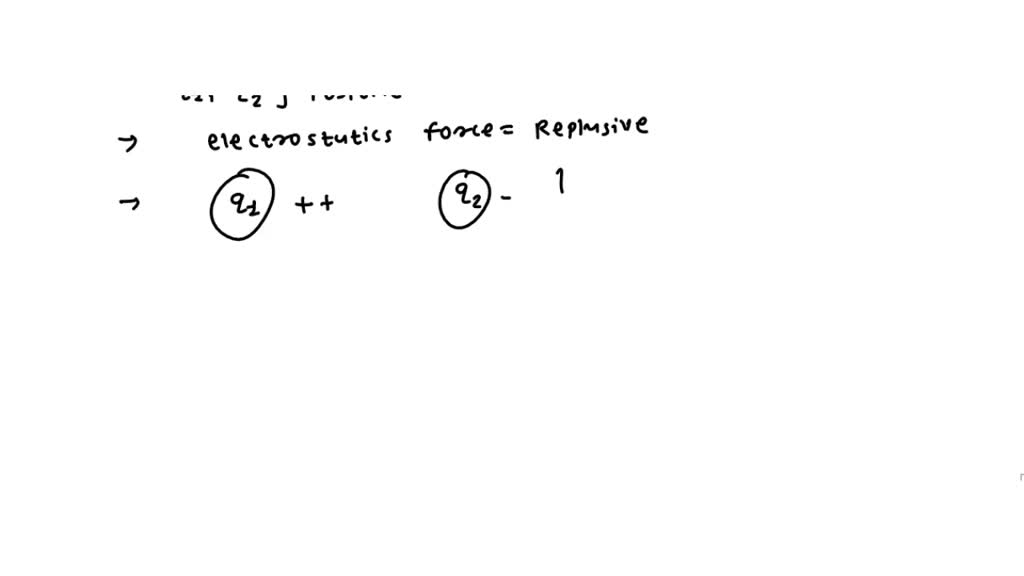 → electrostutics force = Replusive
→ q1 ++ q2 - 1